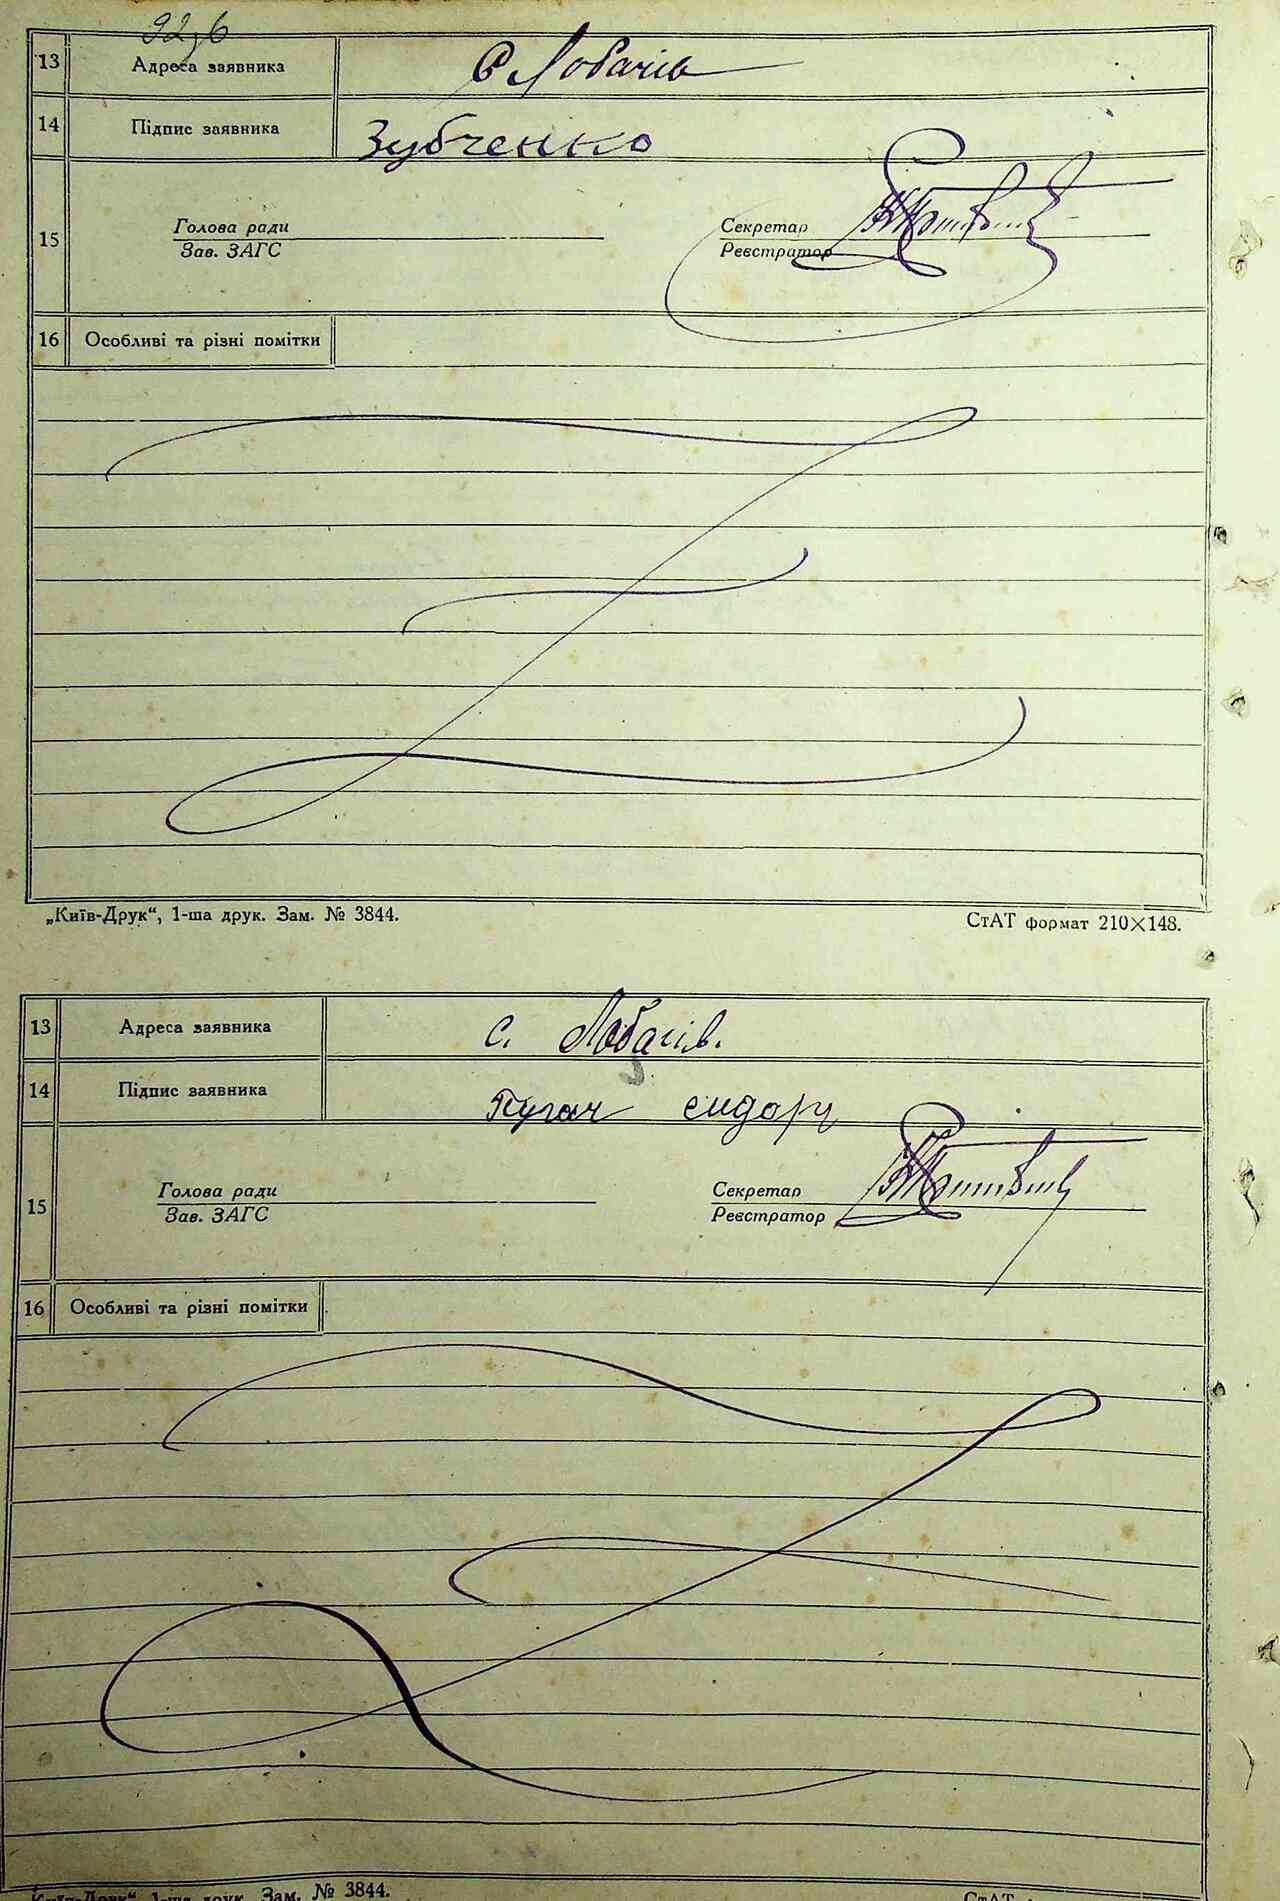 13 Адреса заявника С Лобачів
14 Підпис заявника Зубченко
15 Голова ради Секретар
Зав. ЗАГС Реєстратор
16 Особливі та різні помітки
„Київ-Друк“, 1-ша друк. Зам. № 3844. СтАТ формат 210×148.
13 Адреса заявника с. Лобачів.
14 Підпис заявника Пугач сидор
15 Голова ради Секретар
Зав. ЗАГС Реєстратор
16 Особливі та різні помітки
„Київ-Друк“, 1-ша друк. Зам. № 3844. СтАТ